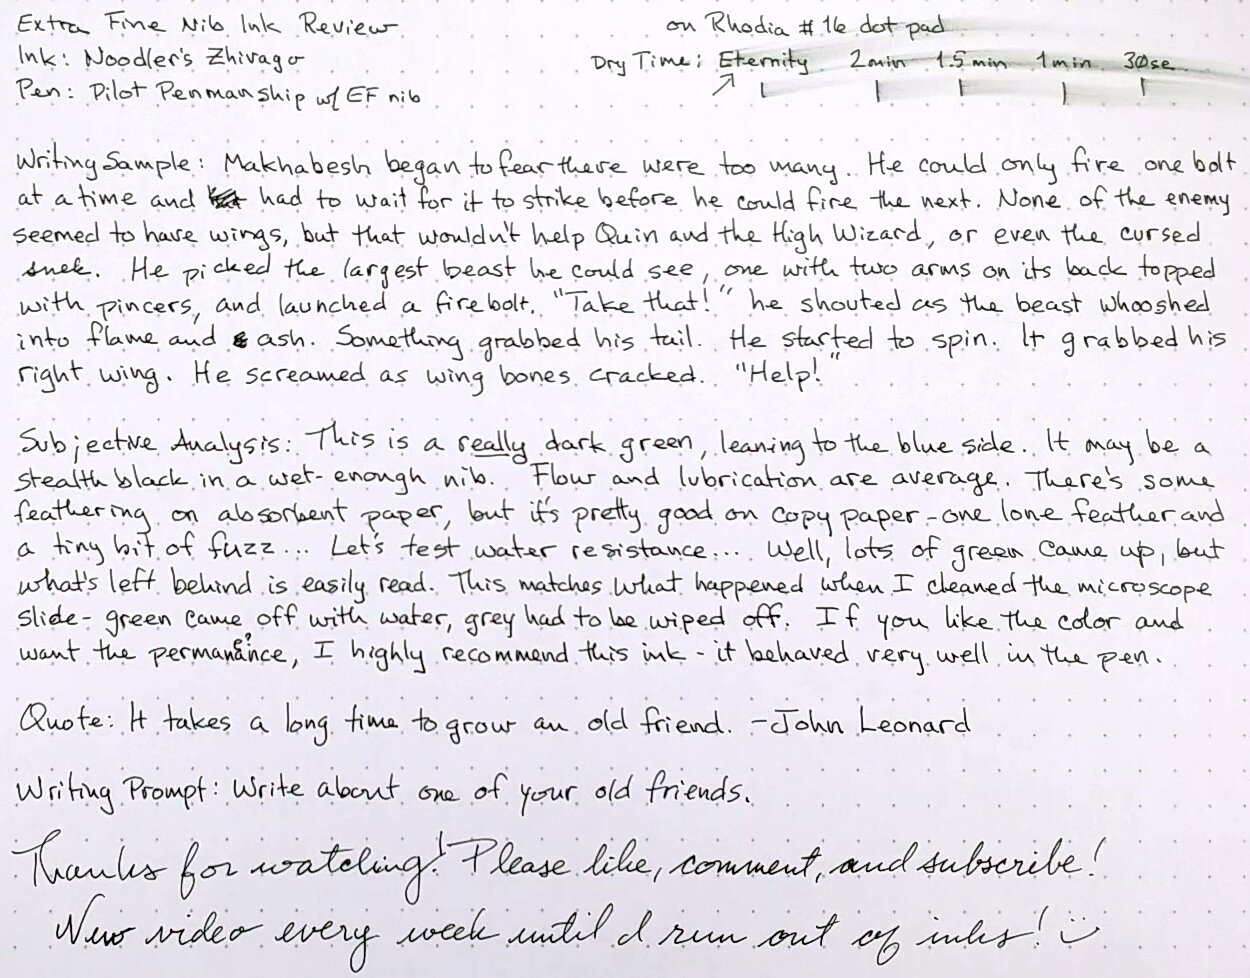 Extra Fine Nib Ink Review
on Rhodia # 16 dot pad
Ink: Noodler's Zhivago
Dry Time: Eternity 2 min 1.5 min 1 min 30 se
Pen: Pilot Penmanship w/ EF nib
Writing Sample: Makhabesh began to fear there were too many. He could only fire one bolt
at a time and had to wait for it to strike before he could fire the next. None of the enemy
seemed to have wings, but that wouldn't help Quin and the High Wizard, or even the cursed
snek. He picked the largest beast he could see, one with two arms on its back topped
with pincers, and launched a fire bolt. "Take that!" he shouted as the beast whooshed
into flame and ash. Something grabbed his tail. He started to spin. It grabbed his
right wing. He screamed as wing bones cracked. "Help!"
Subjective Analysis: This is a really dark green, leaning to the blue side. It may be a
stealth black in a wet-enough nib. Flow and lubrication are average. There's some
feathering on absorbent paper, but it's pretty good on copy paper - one lone feather and
a tiny bit of fuzz... Let's test water resistance... Well, lots of green came up, but
what's left behind is easily read. This matches what happened when I cleaned the microscope
slide - green came off with water, grey had to be wiped off. If you like the color and
want the permanence, I highly recommend this ink - it behaved very well in the pen.
Quote: It takes a long time to grow an old friend. - John Leonard
Writing Prompt: Write about one of your old friends.
Thanks for watching! Please like, comment, and subscribe!
New video every week until I run out of inks! :)